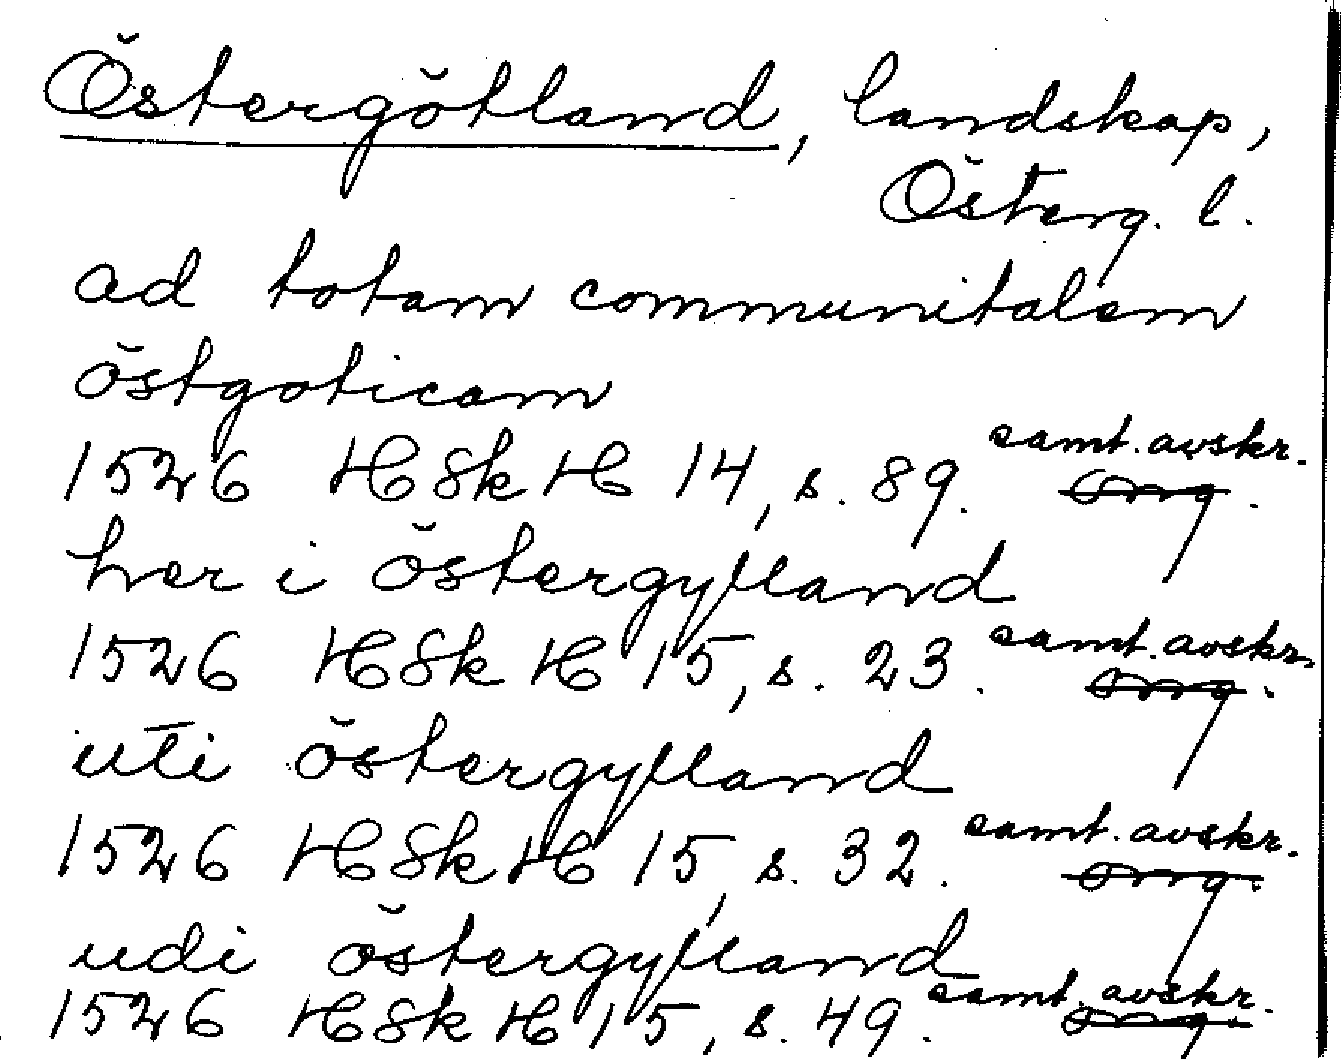 Östergötland, landskap,
Österg. l.
ad totam communitatem
östgoticam
samt. avskr.
1526 HSkH 14, s. 89. orig.
her i östergylland
samt. avskr.
1526 HSkH 15, s. 23. orig.
uti östergylland
samt. avskr.
1526 HSkH 15, s. 32. orig.
udi östergylland
samt. avskr.
1526 HSkH 15, s. 49. orig.